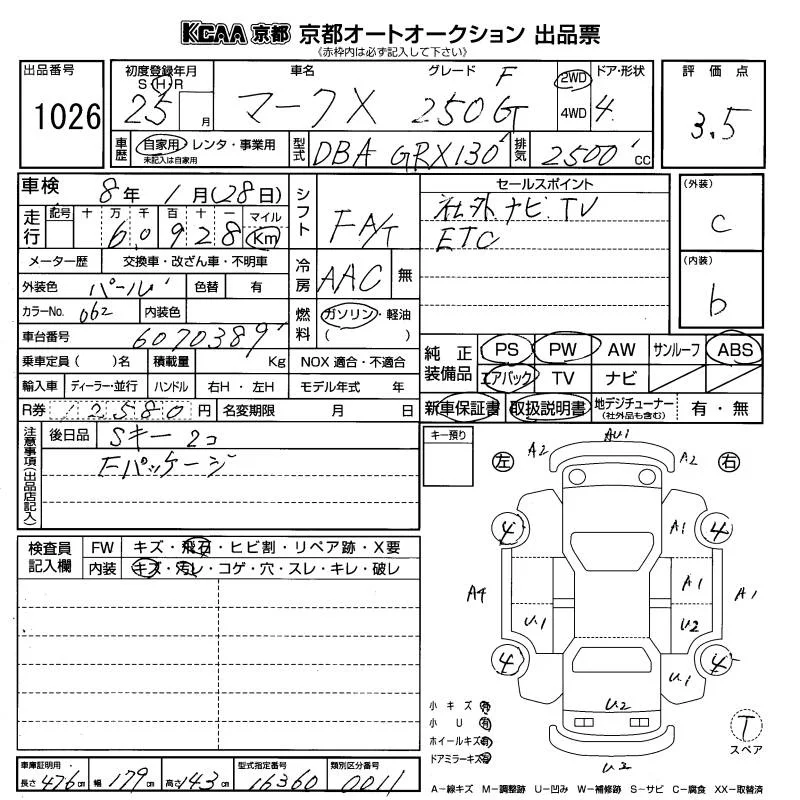 KCAA 京都 京都オートオークション 出品票
《赤枠内は必ず記入して下さい》
出品番号
1026
初度登録年月
S H R
25 月
車名 グレード
マークX 250G F
2WD
4WD
ドア・形状
4
評価点
3.5
車歴
自家用・レンタ・事業用
未記入は自家用
型式
DBA GRX130
排気
2500 CC
車検 8年 1月(28日)
走行
記号 十 万 千 百 十 一 マイル
6 0 9 2 8 Km
メーター歴 交換車・改ざん車・不明車
外装色 パール 色替 有
カラーNo. 062 内装色
車台番号 6070389
乗車定員( )名 積載量 Kg
NOX 適合・不適合
輸入車 ディーラー・並行 ハンドル 右H・左H
モデル年式 年
R券 12580 円 名変期限 月 日
シフト FA/T
冷房 AAC 無
燃料 ガソリン・軽油
( )
セールスポイント
社外ナビ TV
ETC
(外装)
C
(内装)
b
純正装備品
PS PW AW サンルーフ ABS
エアバック TV ナビ
新車保証書 取扱説明書 地デジチューナー
(社外品も含む)
有・無
注意事項(出品店記入)
後日品 Sキー 2コ
Fパッケージ
キー預り
検査員記入欄
FW キズ・飛石・ヒビ割・リペア跡・X要
内装 キズ・汚レ・コゲ・穴・スレ・キレ・破レ
左 右
A2 AU1 A2
4 A1 4
A4 A1 A1
U1 U2
4 U1 4
U2
U2
小キズ 有
小U 有
ホイールキズ 有
ドアミラーキズ
T
スペア
車庫証明用
長さ 476cm 幅 179cm 高さ 143cm
型式指定番号
16360
類別区分番号
0011
A−線キズ M−調整跡 U−凹み W−補修跡 S−サビ C−腐食 XX−取替済